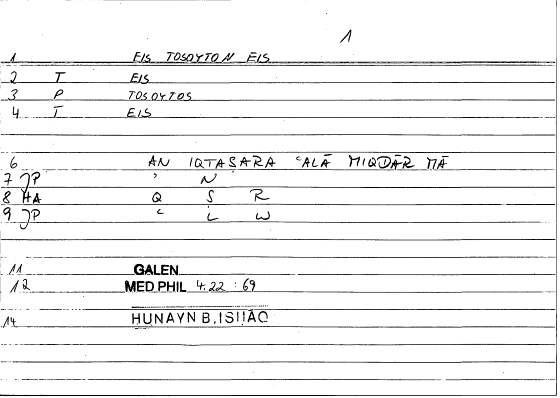 1
1 EIS TOSOYTON EIS
2 T EIS
3 P TOSOYTOS
4 T EIS
6 AN IQTAṢARA ʿALĀ MIQDĀR MĀ
7 JP ʾ N
8 HA Q Ṣ R
9 JP ʿ L W
11 GALEN
12 MED PHIL 4.22 : 69
14 HUNAYN B.ISHAQ